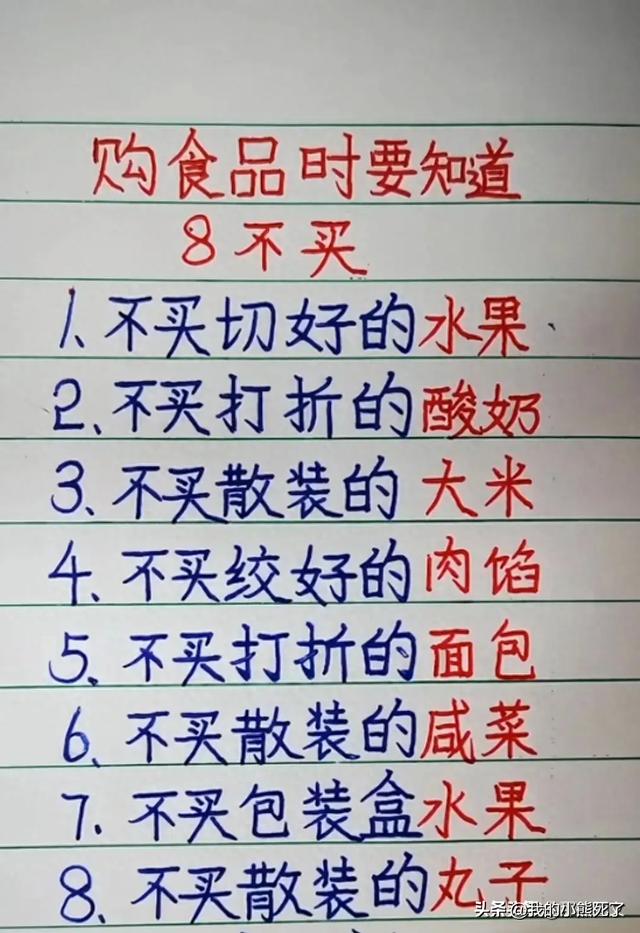 购食品时要知道
8不买
1、不买切好的水果、
2、不买打折的酸奶
3、不买散装的大米
4、不买绞好的肉馅
5、不买打折的面包
6、不买散装的咸菜
7、不买包装盒水果
8、不买散装的丸子
头条@我的小熊死了